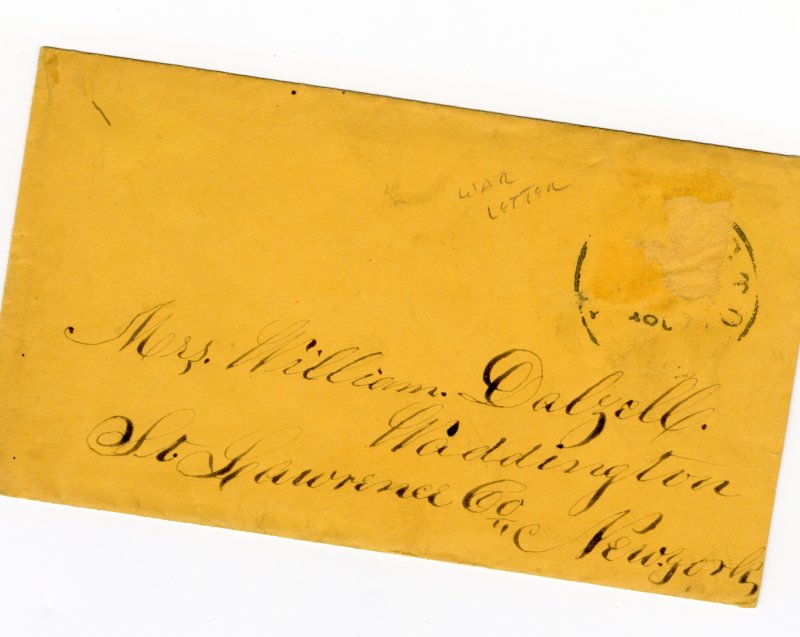 WAR
LETTER
Mrs. William. Dalzell.
Waddington
St. Lawrence Co
New-york,